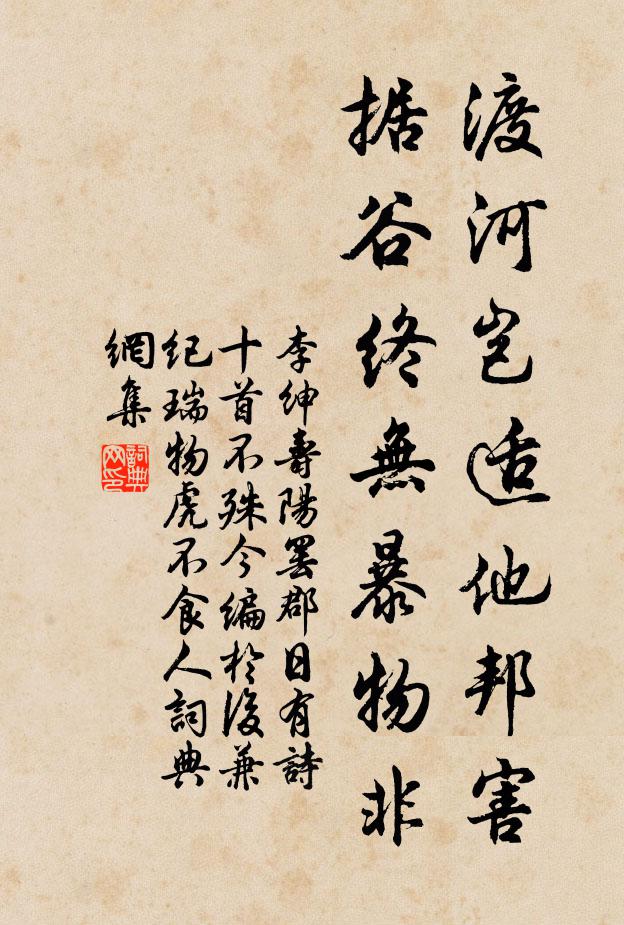 渡河岂适他邦害
据谷终無暴物非
李紳壽陽罷郡日有詩
十首不殊今编於後兼
纪瑞物虎不食人詞典
網集
詞典網印